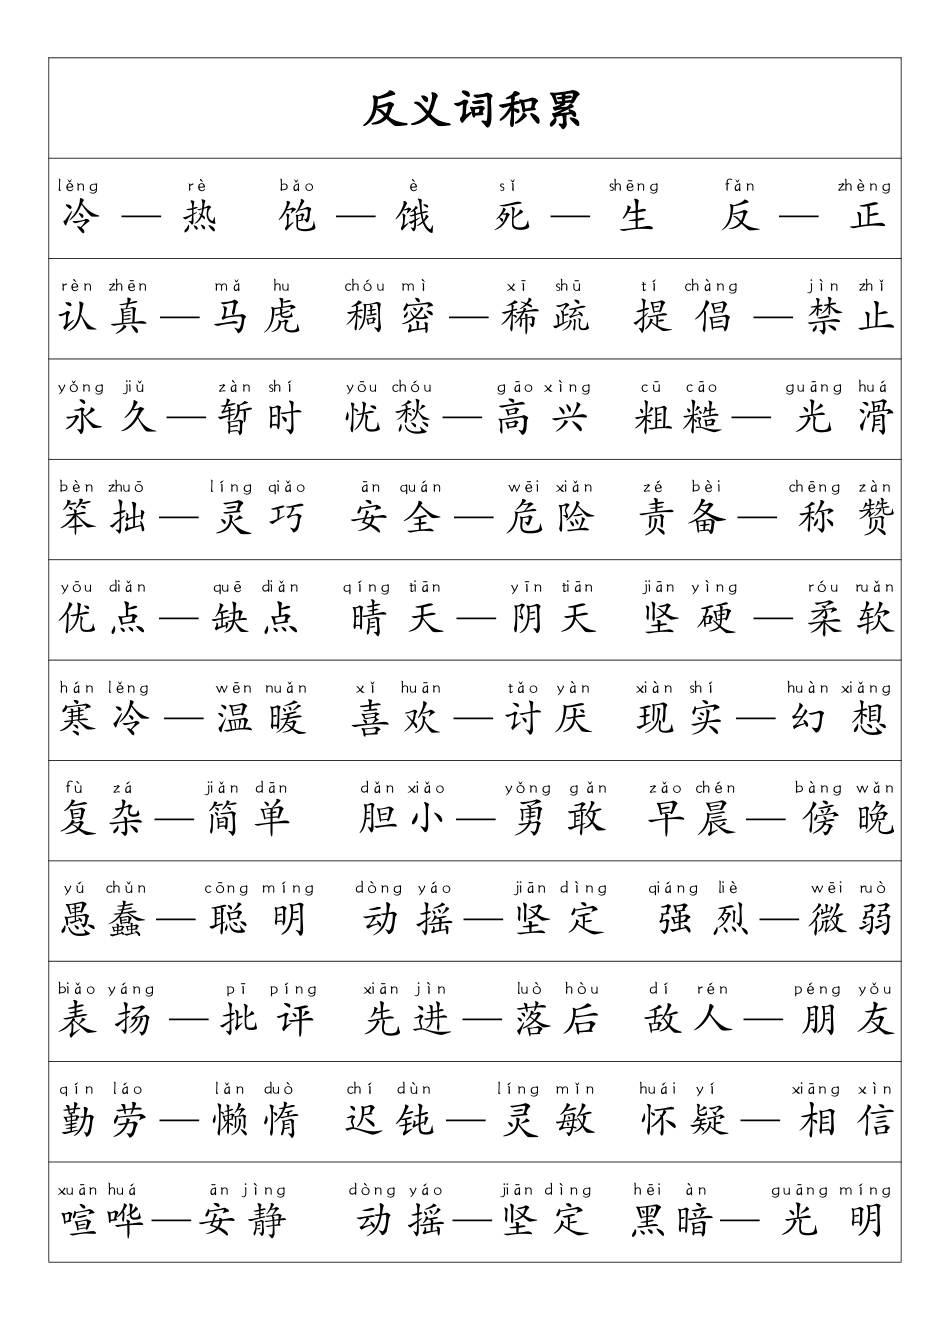 反义词积累
lěng rè bǎo è sǐ shēng fǎn zhèng
冷 — 热 饱 — 饿 死 — 生 反 — 正
rèn zhēn mǎ hu chóu mì xī shū tí chàng jìn zhǐ
认真 — 马虎 稠密 — 稀疏 提倡 — 禁止
yǒng jiǔ zàn shí yōu chóu gāo xìng cū cāo guāng huá
永久 — 暂时 忧愁 — 高兴 粗糙 — 光滑
bèn zhuō líng qiǎo ān quán wēi xiǎn zé bèi chēng zàn
笨拙 — 灵巧 安全 — 危险 责备 — 称赞
yōu diǎn quē diǎn qíng tiān yīn tiān jiān yìng róu ruǎn
优点 — 缺点 晴天 — 阴天 坚硬 — 柔软
hán lěng wēn nuǎn xǐ huān tǎo yàn xiàn shí huàn xiǎng
寒冷 — 温暖 喜欢 — 讨厌 现实 — 幻想
fù zá jiǎn dān dǎn xiǎo yǒng gǎn zǎo chén bàng wǎn
复杂 — 简单 胆小 — 勇敢 早晨 — 傍晚
yú chǔn cōng míng dòng yáo jiān dìng qiáng liè wēi ruò
愚蠢 — 聪明 动摇 — 坚定 强烈 — 微弱
biǎo yáng pī píng xiān jìn luò hòu dí rén péng yǒu
表扬 — 批评 先进 — 落后 敌人 — 朋友
qín láo lǎn duò chí dùn líng mǐn huái yí xiāng xìn
勤劳 — 懒惰 迟钝 — 灵敏 怀疑 — 相信
xuān huá ān jìng dòng yáo jiān dìng hēi àn guāng míng
喧哗 — 安静 动摇 — 坚定 黑暗 — 光明